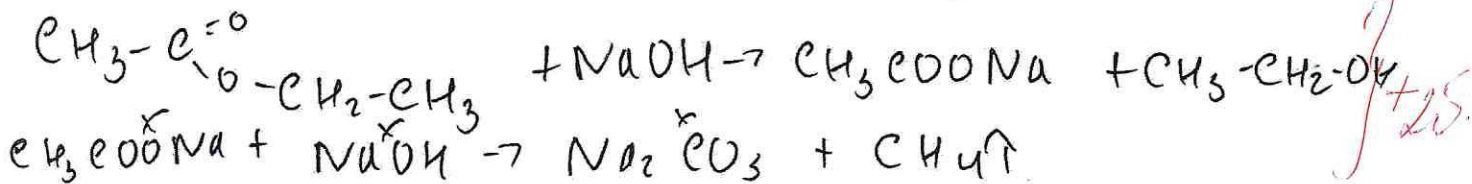 CH₃-C=O\O-CH₂-CH₃ + NaOH → CH₃COONa + CH₃-CH₂-OH +2б.
CH₃COONa + NaOH → Na₂CO₃ + CH₄↑